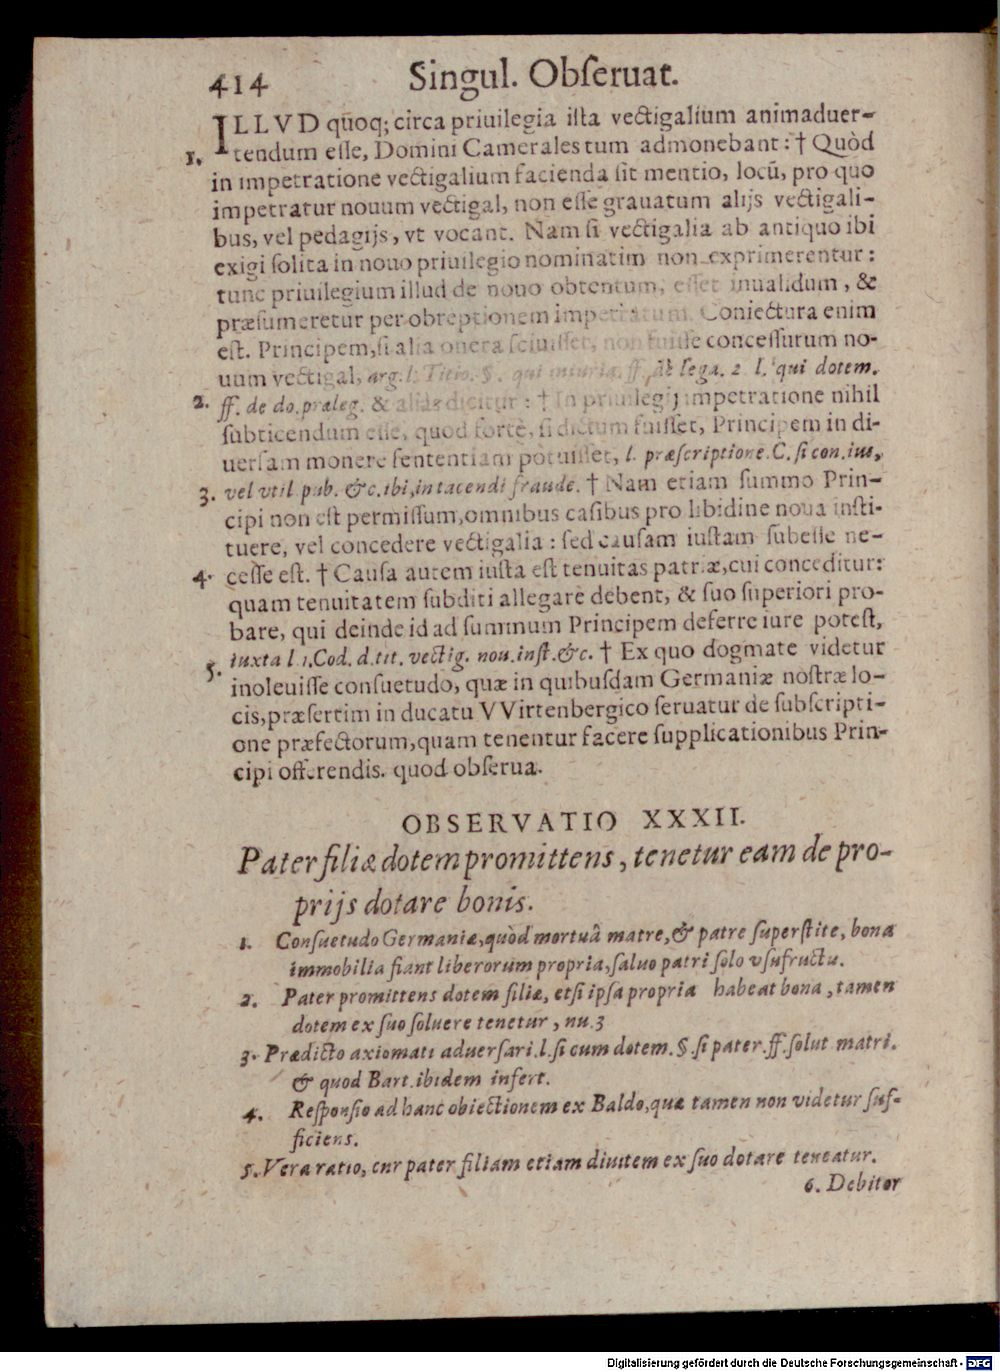 414 Singul. Obſeruat.
ILLVD quoq; circa priuilegia iſta vectigalium animaduer-
1. tendum eſſe, Domini Camerales tum admonebant: † Quòd
in impetratione vectigalium facienda ſit mentio, locũ, pro quo
impetratur nouum vectigal, non eſſe grauatum alijs vectigali-
bus, vel pedagijs, vt vocant. Nam ſi vectigalia ab antiquo ibi
exigi ſolita in nouo priuilegio nominatim non exprimerentur:
tunc priuilegium illud de nouo obtentum, eſſet inualidum, &
præſumeretur per obreptionem impetratum. Coniectura enim
eſt. Principem, ſi alia onera ſciuiſſet, non fuiſſe conceſſurum no-
uum vectigal, arg. l. Titio. §. qui iniuria. ff. de lega. 2 l. qui dotem.
2. ff. de do. præleg. & alias dicitur: † In priuilegij impetratione nihil
ſubticendum eſſe, quod fortè, ſi dictum fuiſſet, Principem in di-
uerſam monere ſententiam potuiſſet, l. præſcriptione. C. ſi con. ius,
3. vel vtil pub. &c. ibi, in tacendi fraude. † Nam etiam ſummo Prin-
cipi non eſt permiſſum, omnibus caſibus pro libidine noua inſti-
tuere, vel concedere vectigalia: ſed cauſam iuſtam ſubeſſe ne-
4. ceſſe eſt. † Cauſa autem iuſta eſt tenuitas patriæ, cui conceditur:
quam tenuitatem ſubditi allegare debent, & ſuo ſuperiori pro-
bare, qui deinde id ad ſummum Principem deferre iure poteſt,
iuxta l 1. Cod. d. tit. vectig. nou. inſt. &c. † Ex quo dogmate videtur
5. inoleuiſſe conſuetudo, quæ in quibuſdam Germaniæ noſtræ lo-
cis, præſertim in ducatu VVirtenbergico ſeruatur de ſubſcripti-
one præfectorum, quam tenentur facere ſupplicationibus Prin-
cipi offerendis. quod obſerua.
OBSERVATIO XXXII.
Pater filiæ dotem promittens, tenetur eam de pro-
prijs dotare bonis.
1. Conſuetudo Germaniæ, quòd mortuâ matre, & patre ſuperſtite, bona
immobilia fiant liberorum propria, ſaluo patri ſolo vſufructu.
2. Pater promittens dotem filiæ, etſi ipſa propria habeat bona, tamen
dotem ex ſuo ſoluere tenetur, nu. 3
3. Prædicto axiomati aduerſari. l. ſi cum dotem. §. ſi pater. ff. ſolut matri.
& quod Bart. ibidem infert.
4. Reſponſio ad hanc obiectionem ex Baldo, quæ tamen non videtur ſuf-
ficiens.
5. Vera ratio, cur pater filiam etiam diuitem ex ſuo dotare teneatur.
6. Debitor
Digitalisierung gefördert durch die Deutsche Forschungsgemeinschaft - DFG